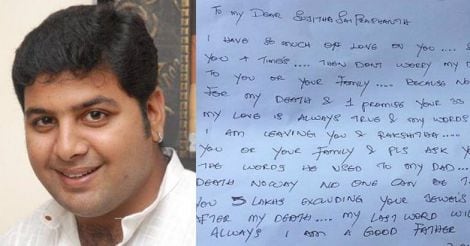 TO MY DEAR SUJITHA SAI PRASHANTH
I HAVE SO MUCH OF LOVE ON YOU....
YOU 4 TIMES.... THEN DONT WORRY MY D
TO YOU OR YOUR FAMILY.... BECAUSE NO
FOR MY DEATH & I PROMISE YOUR
MY LOVE IS ALWAYS TRUE & MY WORDS
I AM LEAVING YOU & RAKSHITHA....
YOU OR YOUR FAMILY & PLS ASK YO
THE WORDS HE USED TO MY DAD...
DEATH NOWAY NO ONE CAN BE
YOU 5 LAKHS EXCLUDING YOUR JEWEL'S
AFTER MY DEATH.... MY LAST WORD WI
ALWAYS I AM A GOOD FATHER